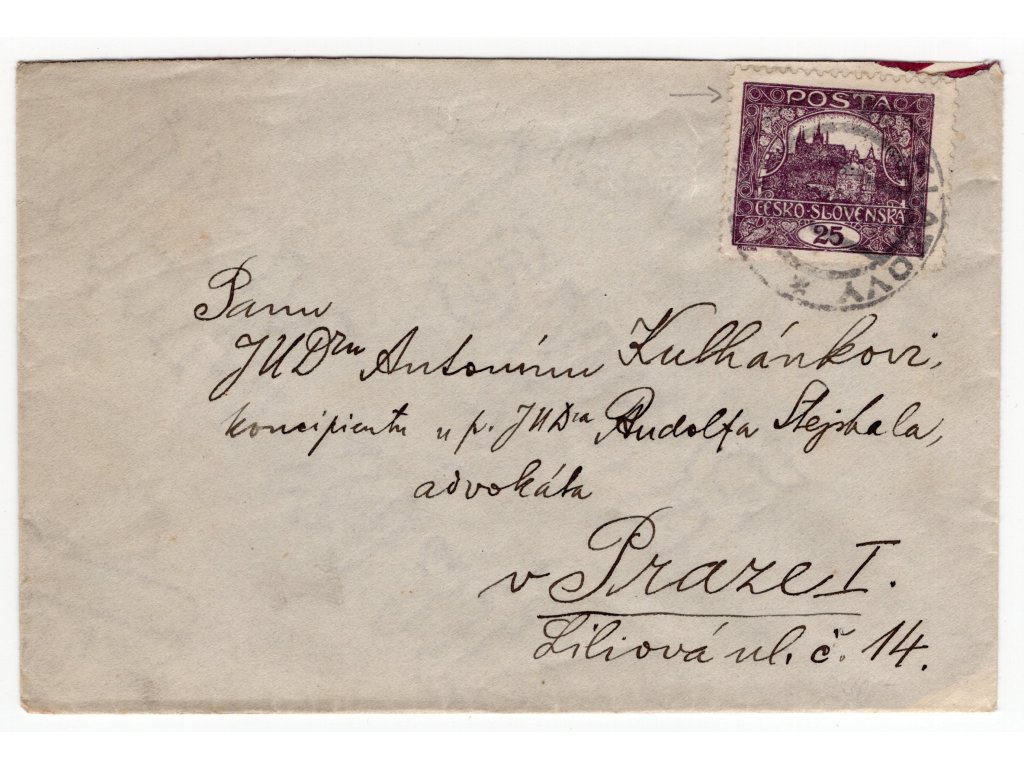 POŠTA
ČESKO-SLOVENSKÁ
25
MUCHA
KLATOVY
Panu
JUDru Antonínu Kulhánkovi,
koncipientu u p. JUDra Rudolfa Stejskala,
advokáta
v Praze I.
Liliová ul. č. 14.